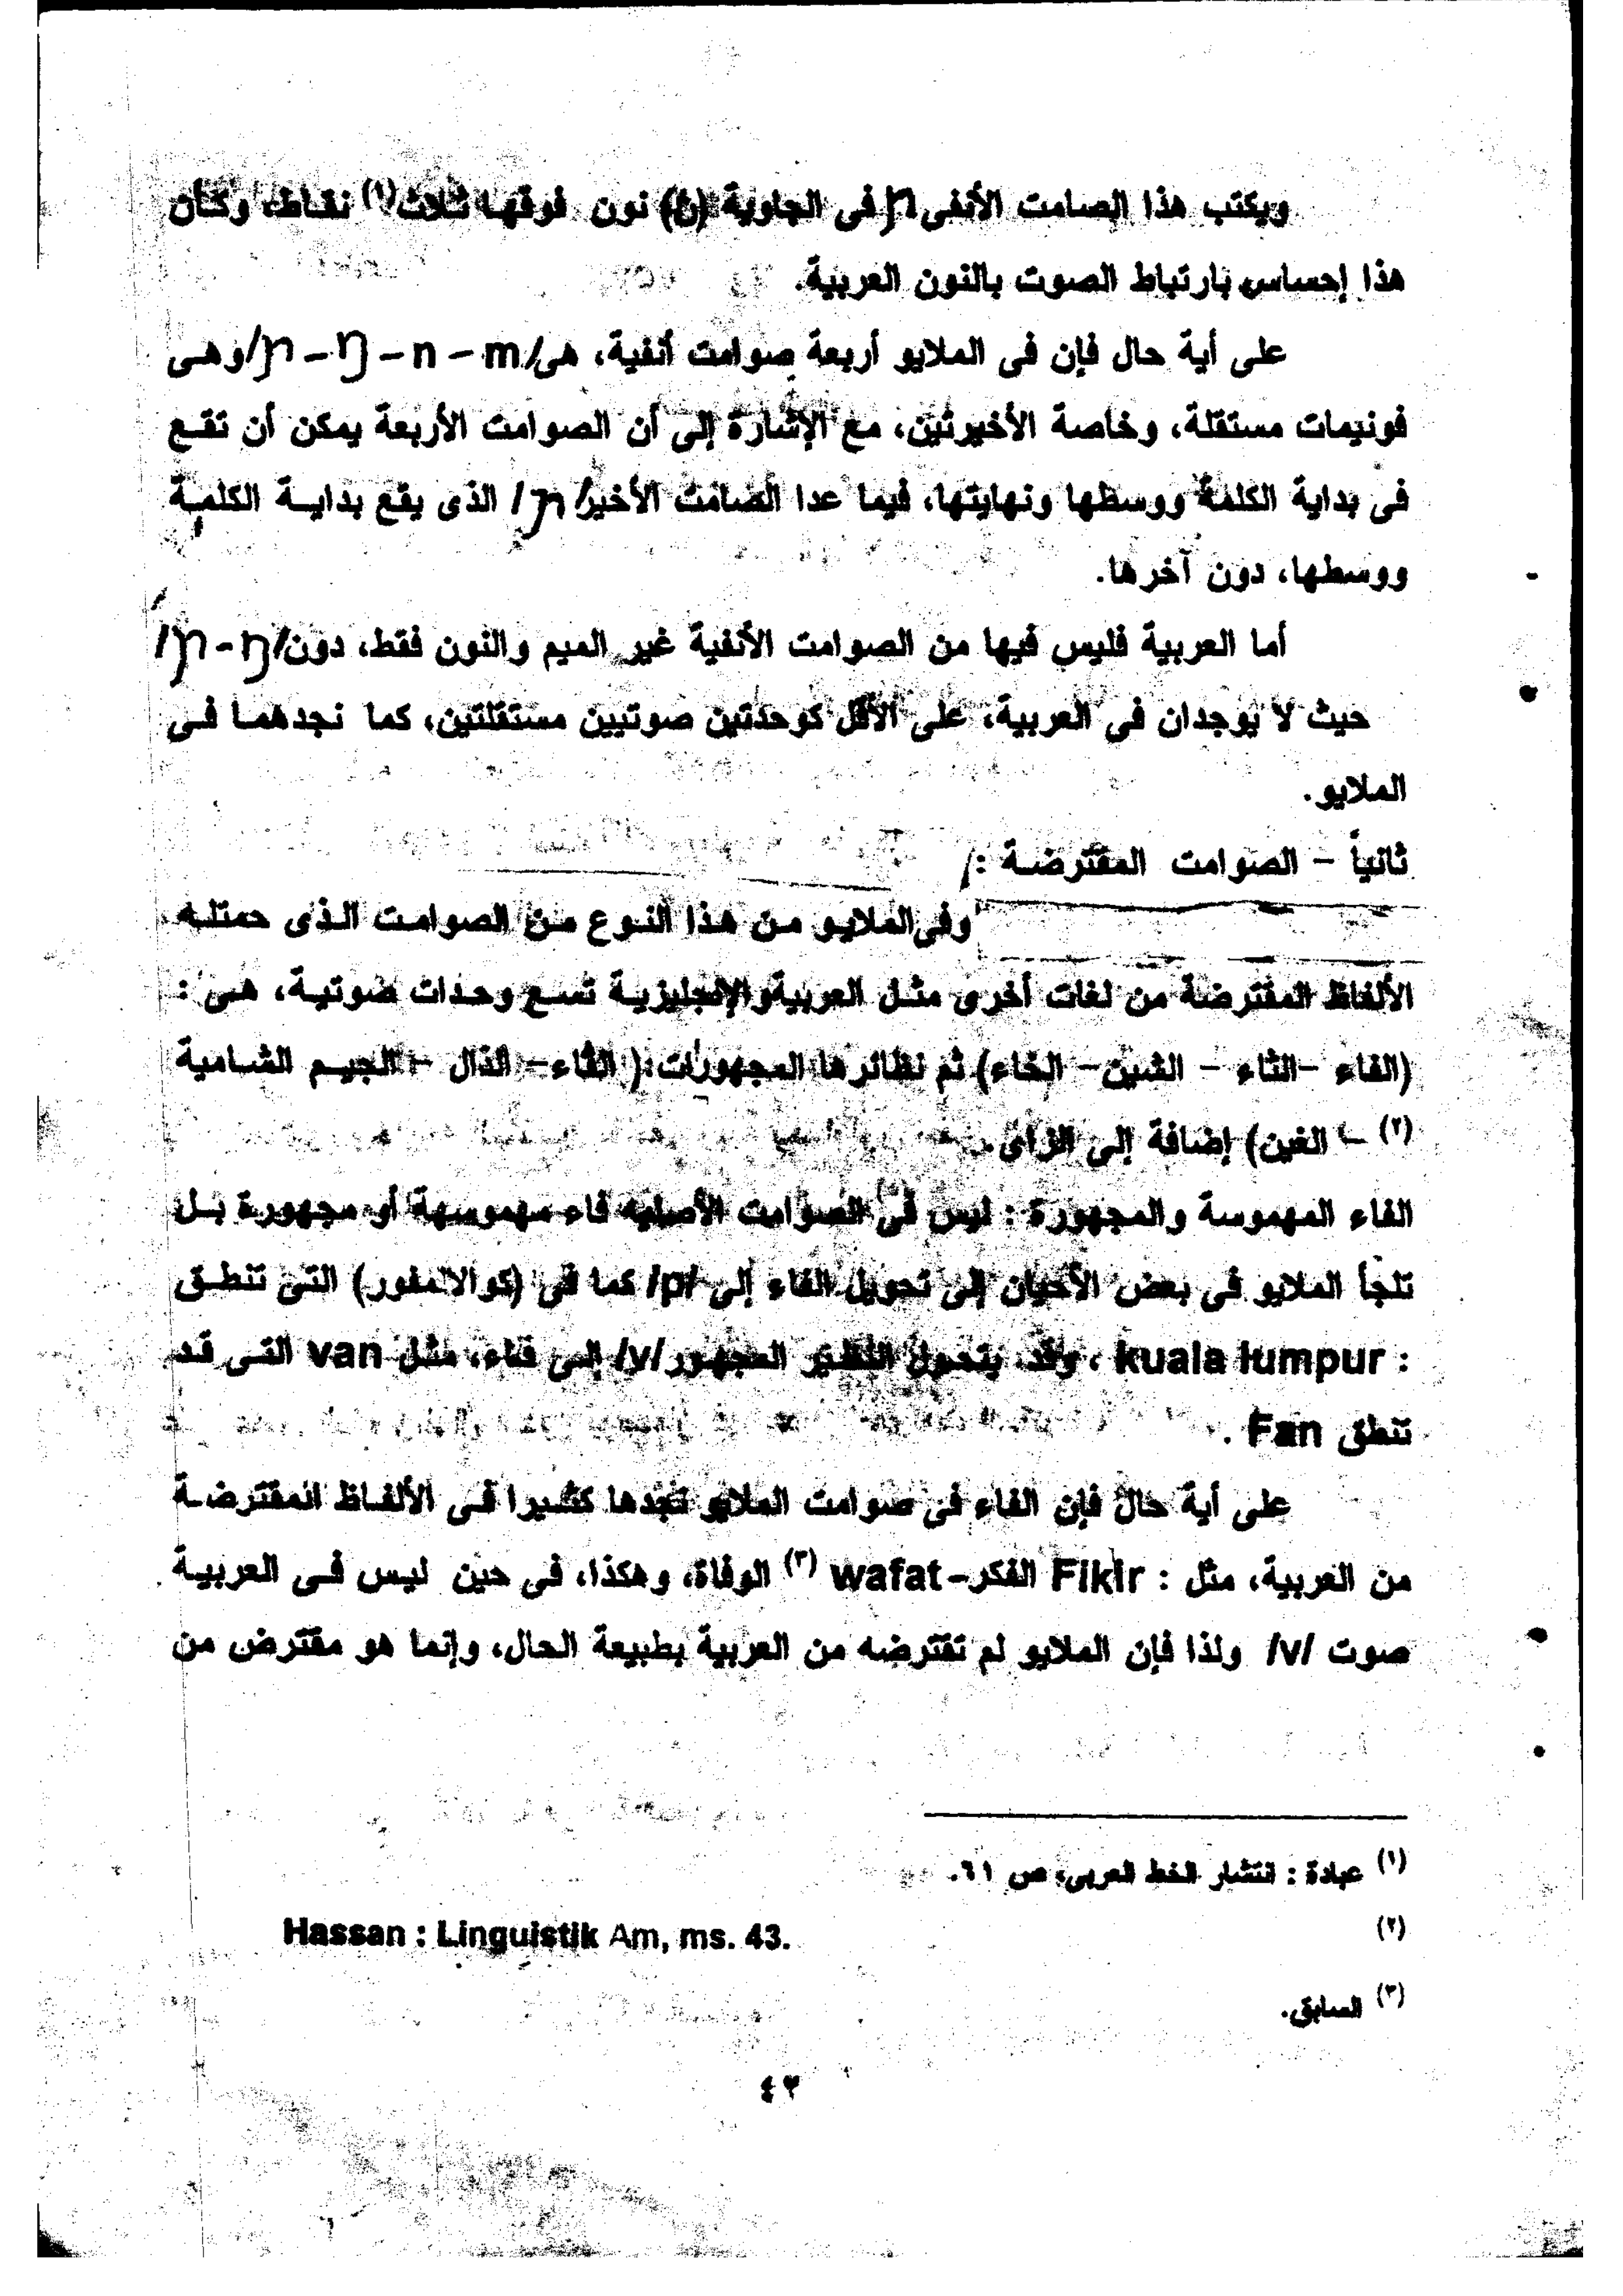 ويكتب هذا الصامت الأنفى ɲ فى الجاوية (ڽ) نون فوقها ثلاث(١) نقاط، وكأن
هذا إحساس بارتباط الصوت بالنون العربية.
على أية حال فإن فى الملايو أربعة صوامت أنفية، هى/ɲ – ŋ – n – m/وهى
فونيمات مستقلة، وخاصة الأخيرتين، مع الإشارة إلى أن الصوامت الأربعة يمكن أن تقع
فى بداية الكلمة ووسطها ونهايتها، فيما عدا الصامت الأخير/ɲ/ الذى يقع بداية الكلمة
ووسطها، دون آخرها.
أما العربية فليس فيها من الصوامت الأنفية غير الميم والنون فقط، دون/ɲ - ŋ/
حيث لا يوجدان فى العربية، على الأقل كوحدتين صوتيين مستقلتين، كما نجدهما فى
الملايو.
ثانياً – الصوامت المقترضة :
وفى الملايو من هذا النوع من الصوامت الذى حمتله
الألفاظ المقترضة من لغات أخرى مثل العربية والإنجليزية تسع وحدات صوتية، هى :
(الفاء –الثاء – الشين– الخاء) ثم نظائرها المجهورات:( الفاء– الذال – الجيم الشامية
(٢) – الغين) إضافة إلى الزاى.
الفاء المهموسة والمجهورة : ليس فى الصوامت الأصلية فاء مهموسهة أو مجهورة بل
تلجأ الملايو فى بعض الأحيان إلى تحويل الفاء إلى /p/ كما فى (كوالالمفور) التى تنطق
: kuala lumpur ، وقد يتحول النظير المجهور/v/ إلى فاء، مثل van التى قد
تنطق Fan .
على أية حال فإن الفاء فى صوامت الملايو تجدها كثيرا فى الألفاظ المقترضة
من العربية، مثل : Fikir الفكر– wafat (٣) الوفاة، وهكذا، فى حين ليس فى العربية
صوت /v/ ولذا فإن الملايو لم تقترضه من العربية بطبيعة الحال، وإنما هو مقترض من
(١) عبادة : انتشار الخط العربى، ص ٦١.
(٢) Hassan : Linguistik Am, ms. 43.
(٣) السابق.
٤٣